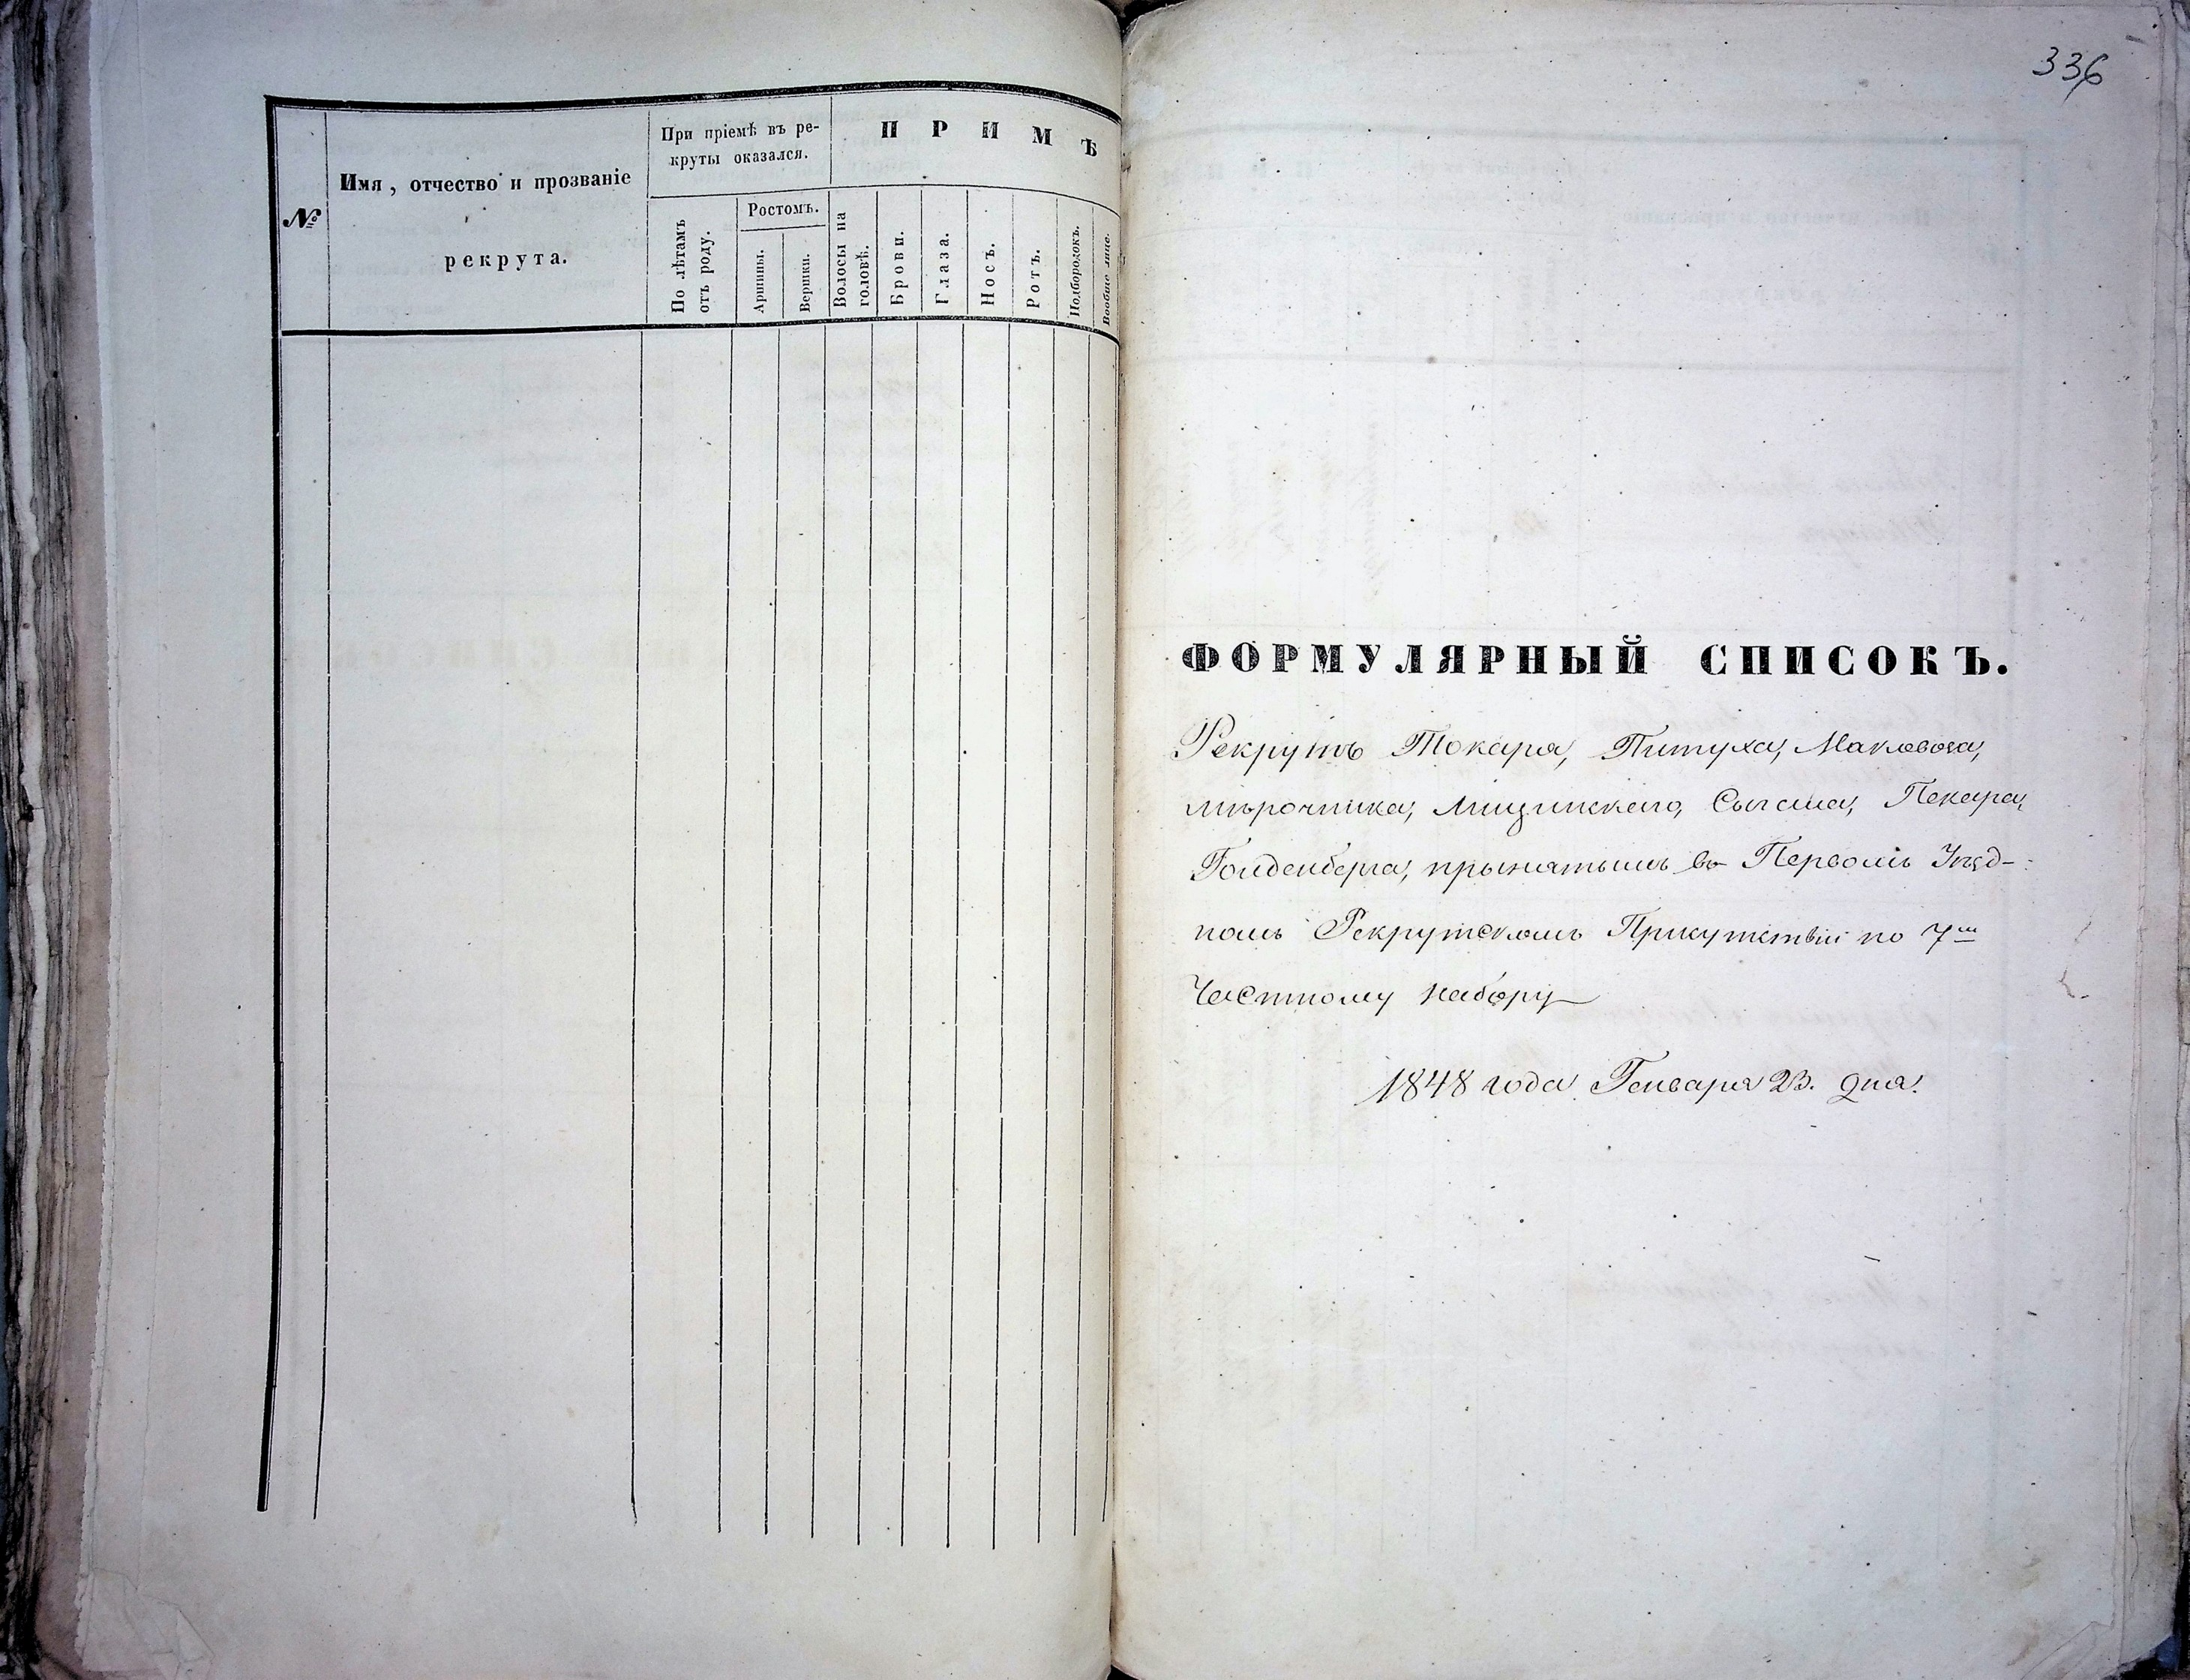 №
Имя, отчество и прозваніе
рекрута.
При пріемѣ въ ре-
круты оказался.
По лѣтамъ
отъ роду.
Ростомъ.
Аршины.
Вершки.
ПРИМѢ
Волосы на
головѣ.
Брови.
Глаза.
Носъ.
Ротъ.
Подбородокъ.
Вообще лице.
336
ФОРМУЛЯРНЫЙ СПИСОКЪ.
Рекрутъ Токаря, Питуха,
мѣрочника, Пекаря,
Голденберга, принятымъ въ Первомъ Уѣзд-
номъ Рекрутскомъ Присутствіи по 7му
Частному набору
1848 года Генваря 23. дня.